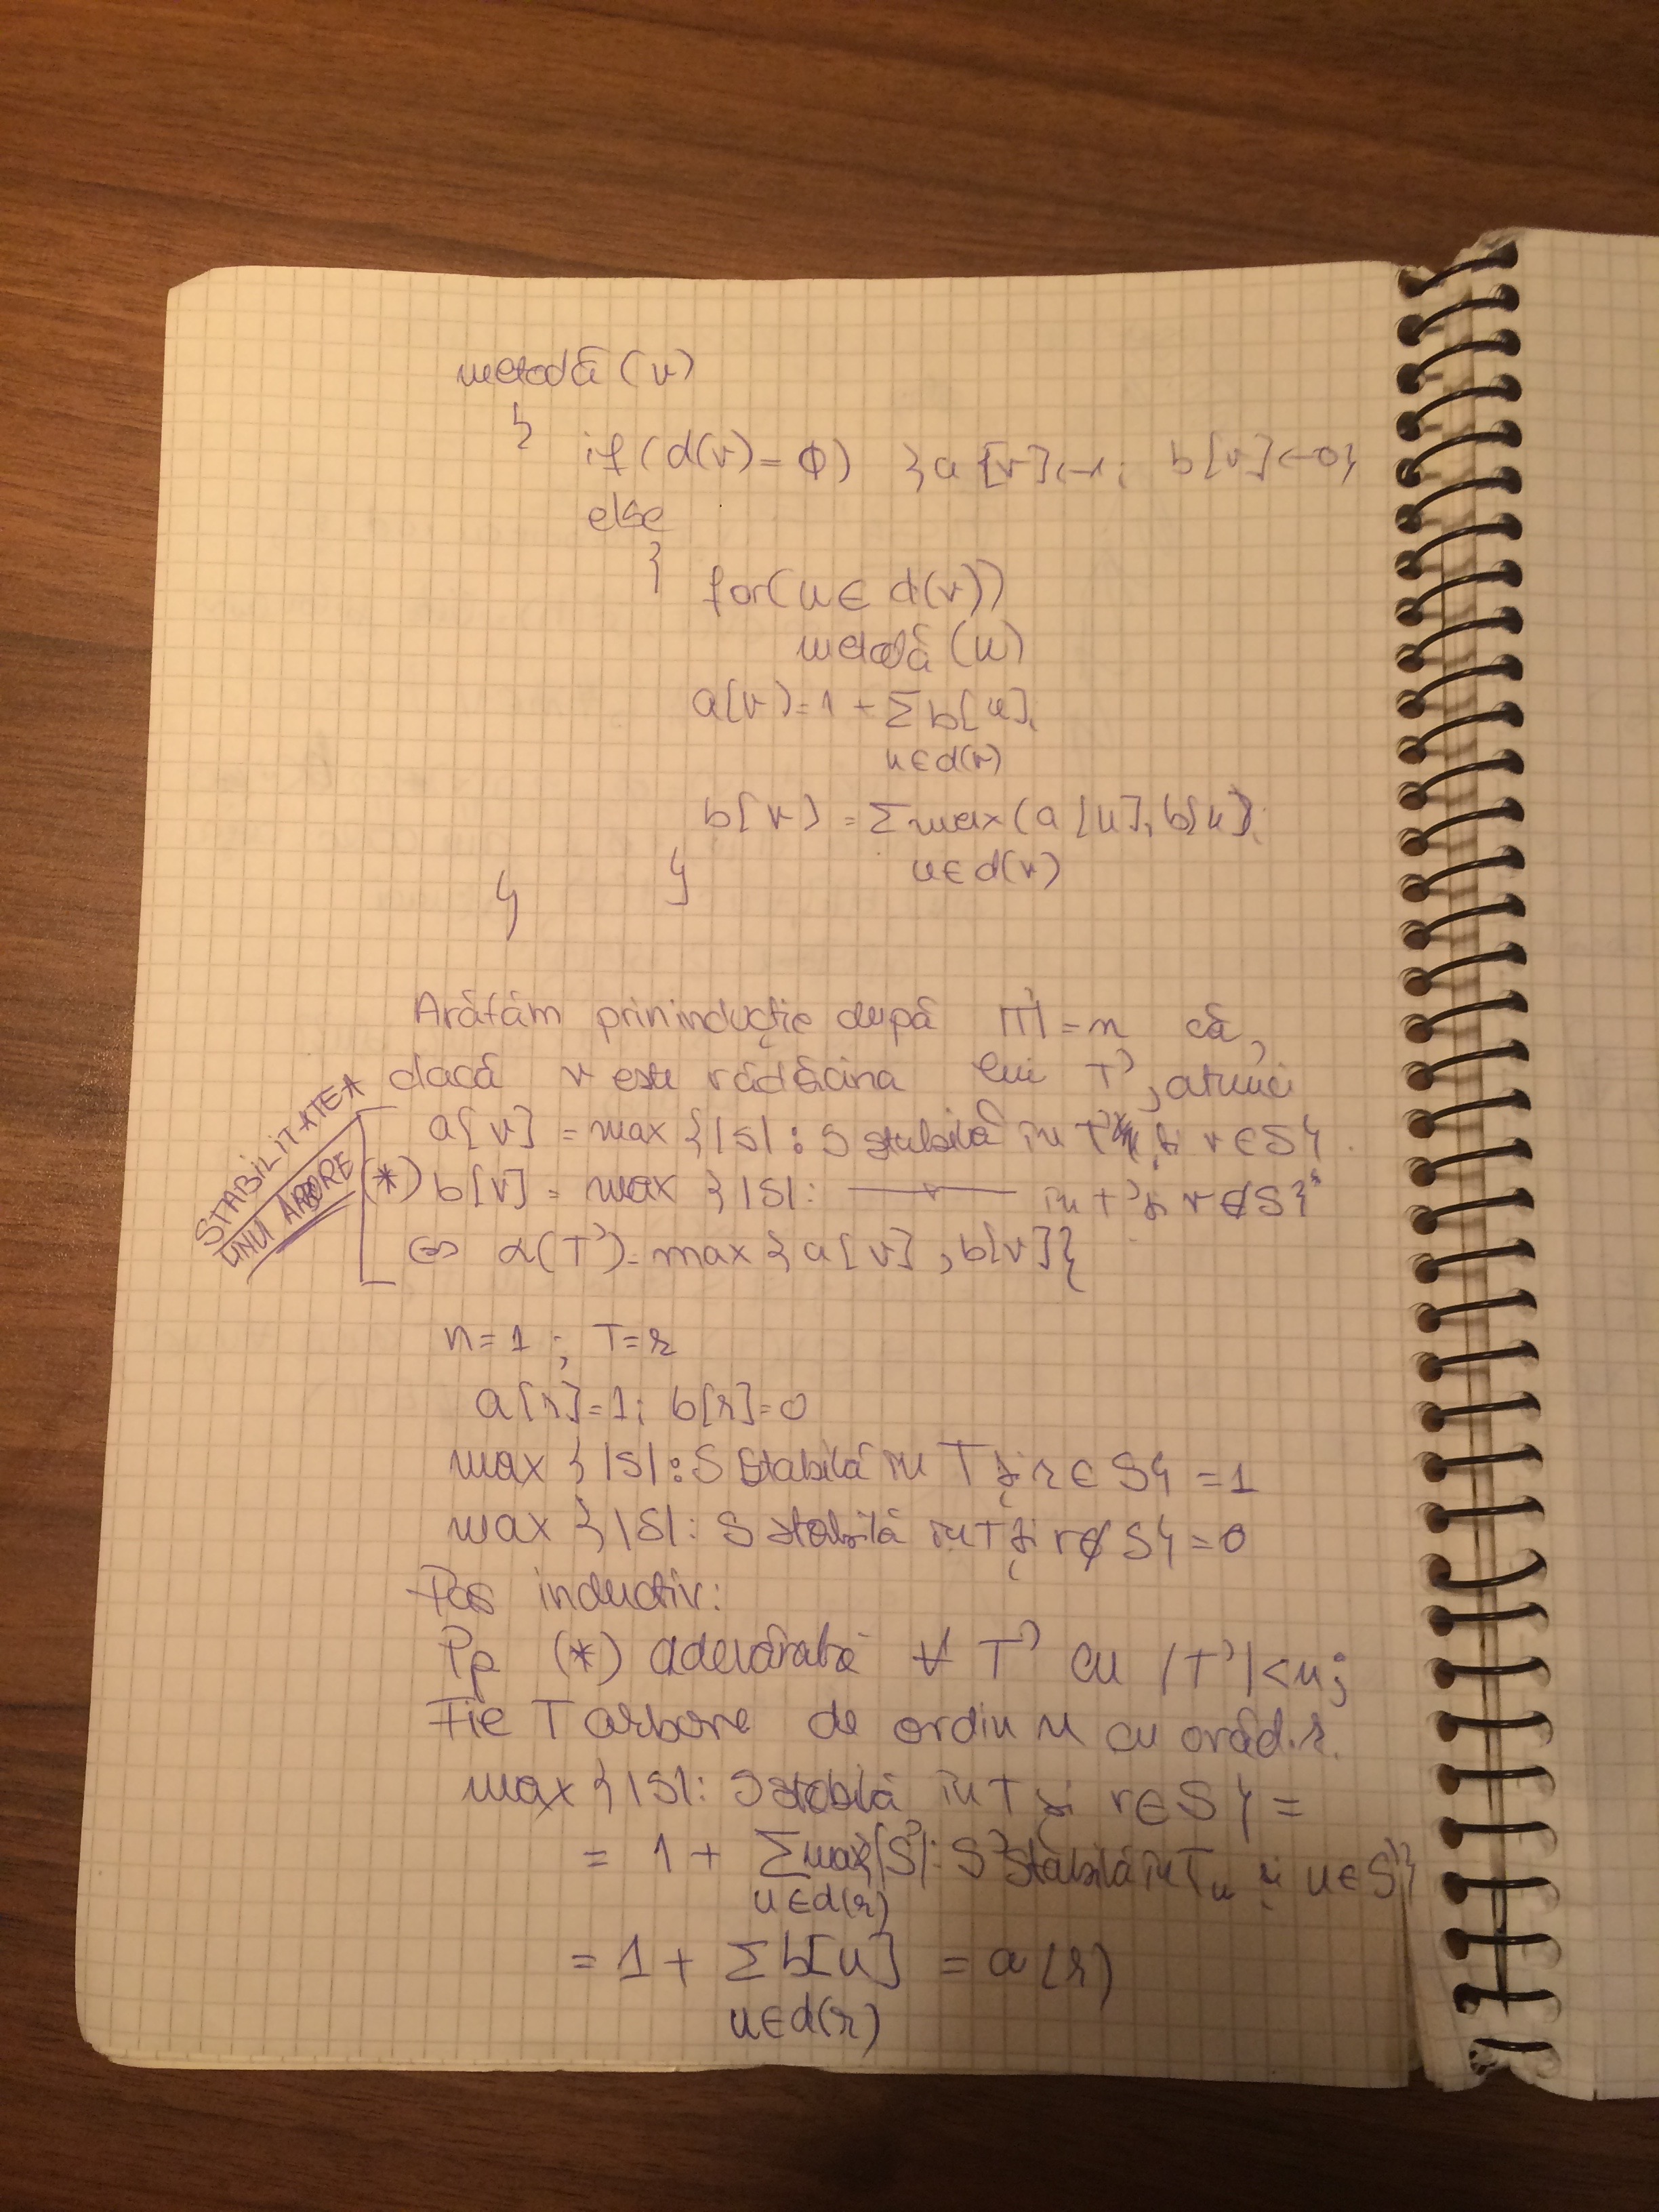 metodă (v)
{
if (d(v) = ∅) {a[v]←1; b[v]←0}
else
{
for(u∈ d(v))
metodă (u)
a[v]=1 + Σ b[u];
u∈d(v)
b[v] = Σ max(a[u], b[u]);
u∈d(v)
}
}
Arătăm prin inducție după |T'|=n că,
dacă v este rădăcina lui T', atunci
a[v] = max {|S| : S stabilă în T' și v∈S}
(*) b[v] = max {|S| : —〃— în T' și v∉S}
⇔ α(T') = max {a[v], b[v]}
STABILITATEA
UNUI ARBORE
n=1 ; T=r
a[r]=1; b[r]=0
max {|S| : S stabilă în T și r∈S} =1
max {|S| : S stabilă în T și r∉S} =0
Pas inductiv:
Pp (*) adevărată ∀ T' cu |T'|<n;
Fie T arbore de ordin n cu răd. r.
max {|S| : S stabilă în T și r∈S} =
= 1 + Σ max{|S'| : S' stabilă în Tu și u∈S'}
u∈d(r)
= 1 + Σ b[u] = a[r]
u∈d(r)